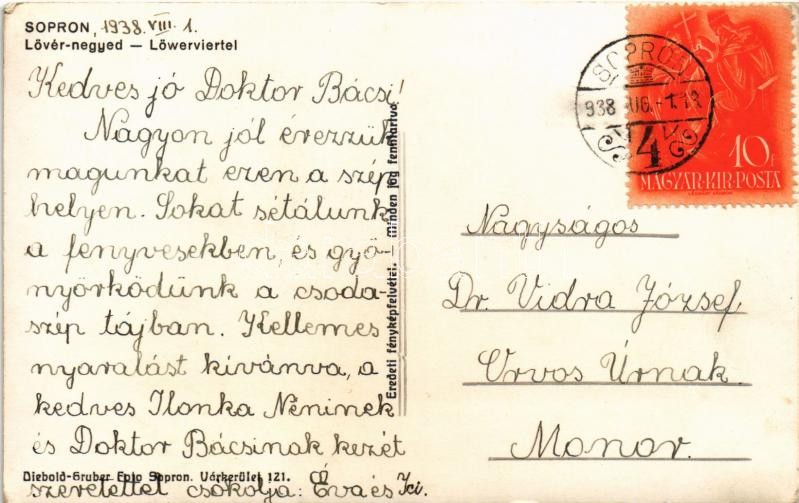 SOPRON, 1938. VIII. 1.
Lövér-negyed — Löwerviertel
Kedves jó Doktor Bácsi!
Nagyon jól érezzük
magunkat ezen a szép
helyen. Sokat sétálunk
a fenyvesekben, és gyö-
nyörködünk a csoda-
szép tájban. Kellemes
nyaralást kívánva, a
kedves Ilonka Néninek
és Doktor Bácsinak kezét
szeretettel csókolja: Éva és Ici.
Diebold-Gruber Epta Sopron. Várkerület 121.
Eredeti fényképfelvétel. — Minden jog fenntartva
SOPRON
938 AUG. -1. 18
4
10 f
MAGYAR·KIR·POSTA
Nagyságos
Dr. Vidra József
Orvos Úrnak.
Monor.